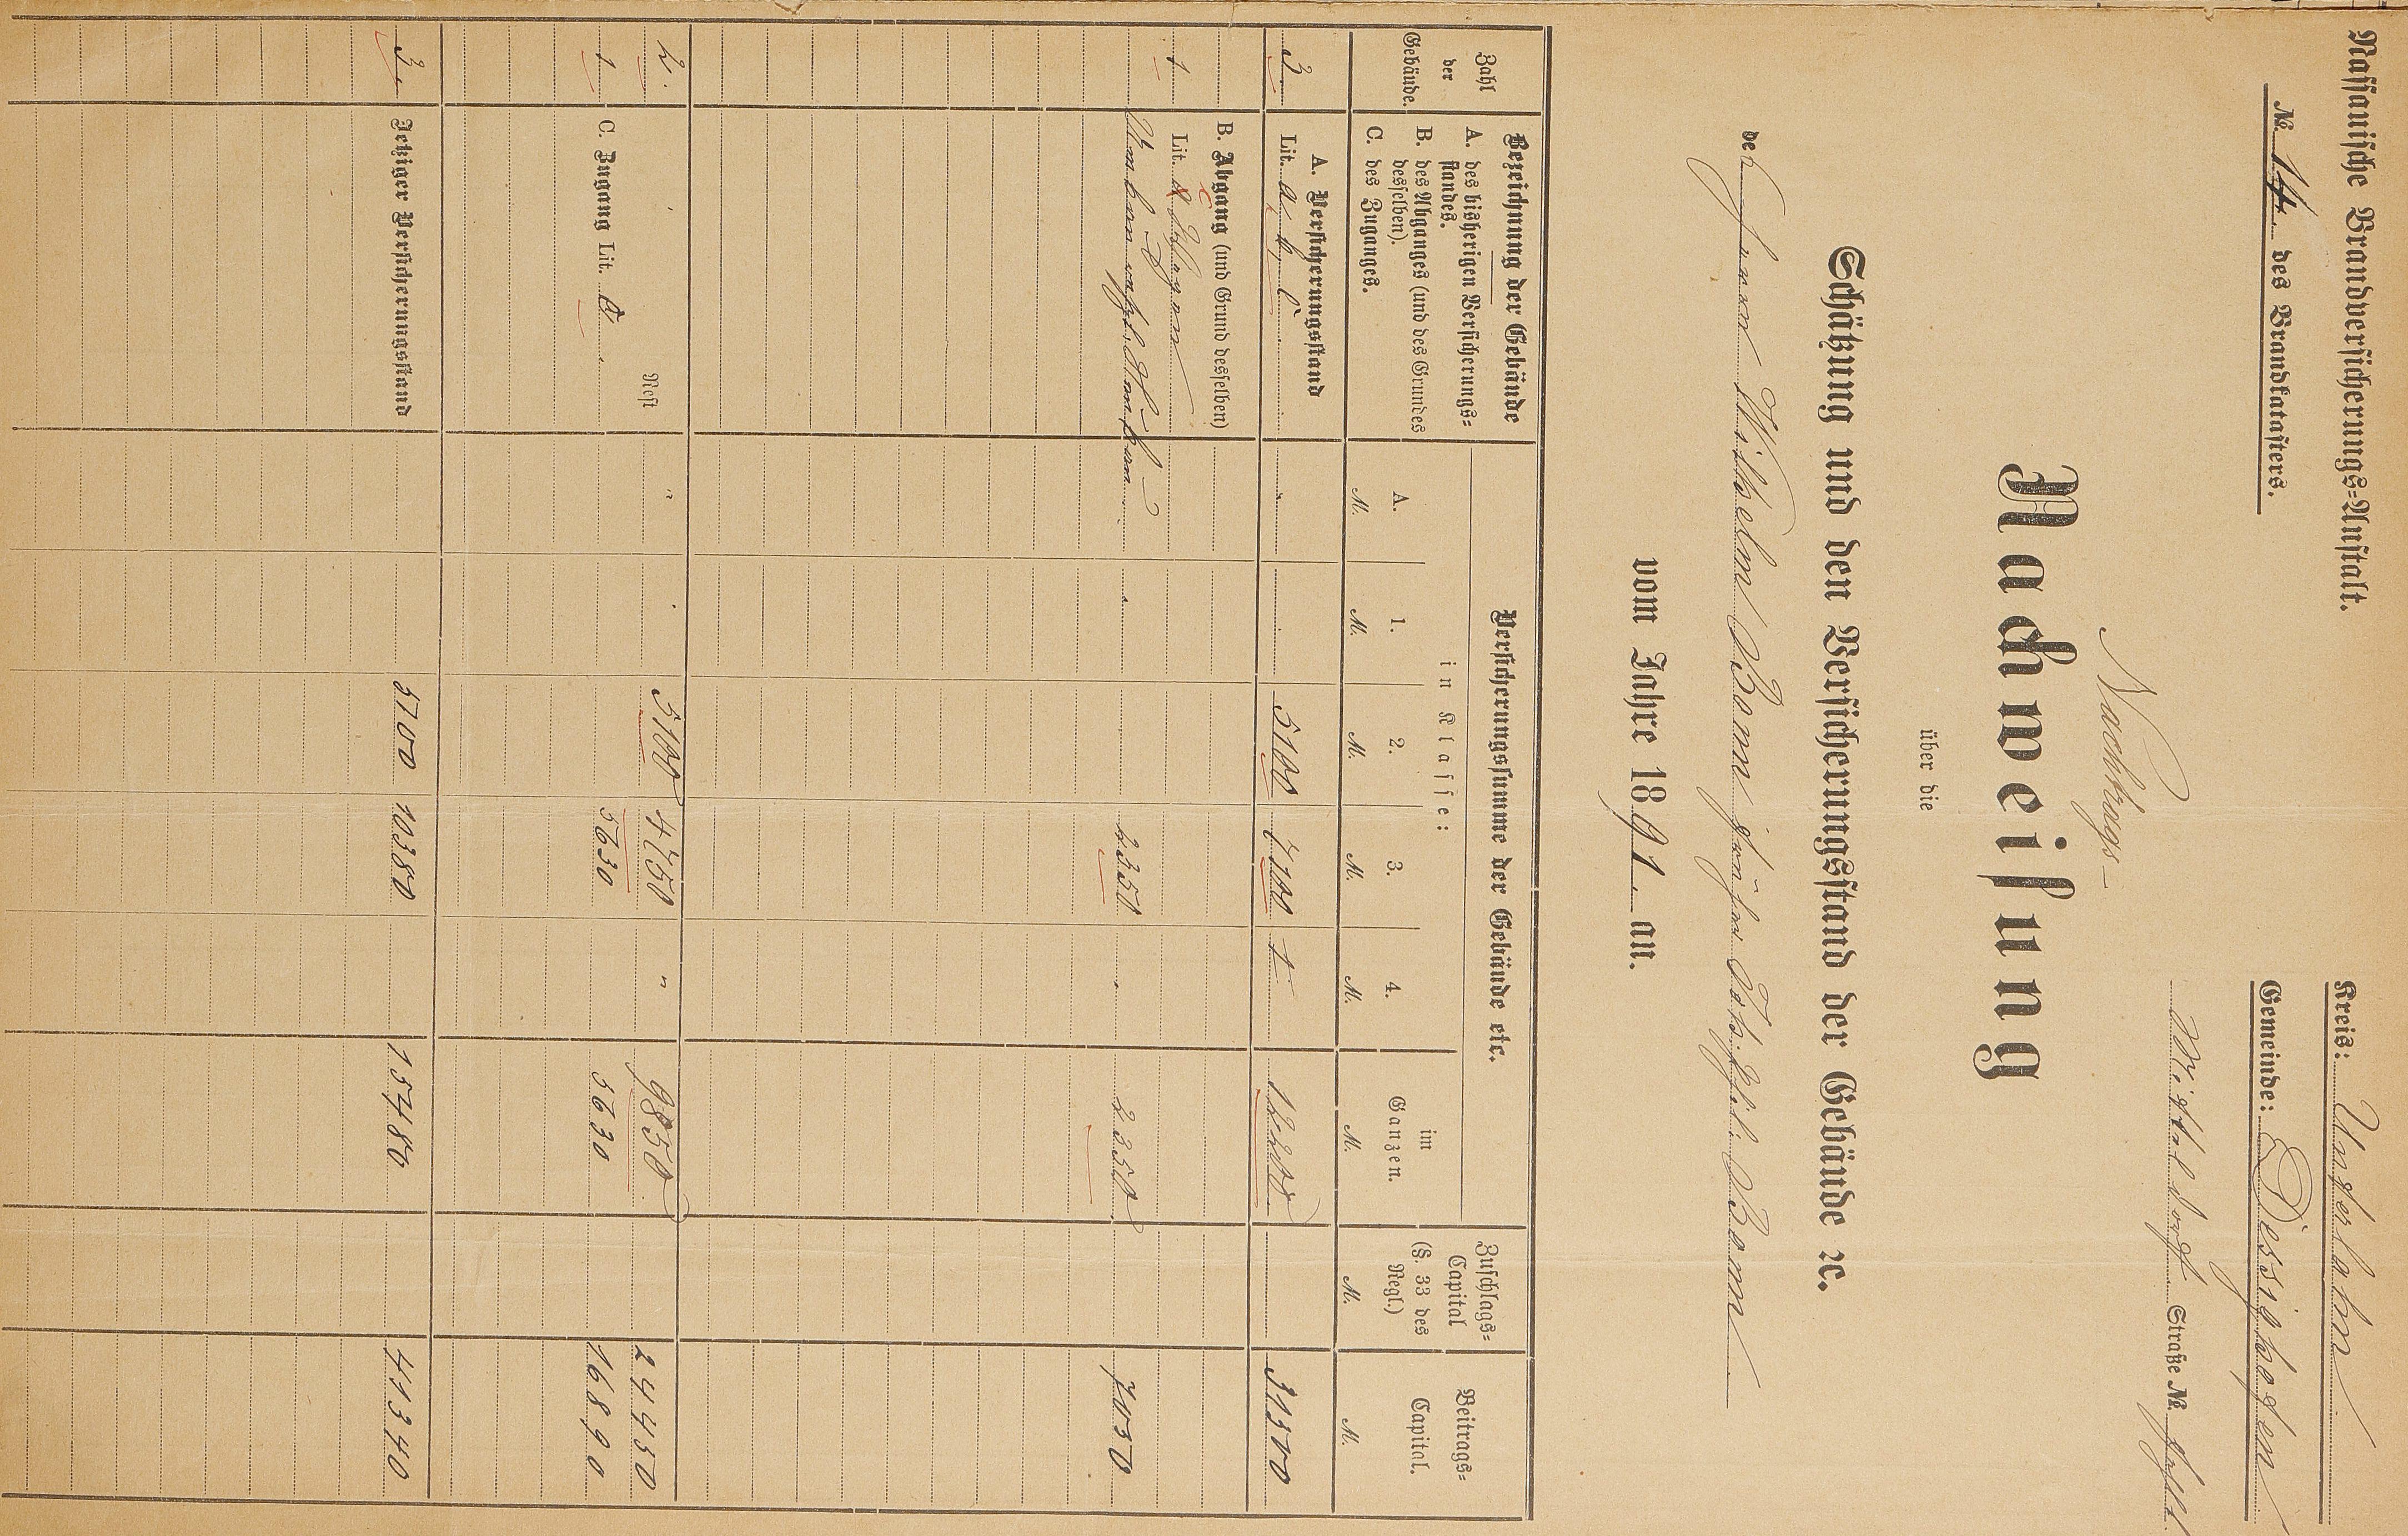 Nassauische Brandversicherungs-Anstalt.
№ 14 des Brandkatasters.
Kreis: Unterlahn
Gemeinde: Dessighofen
Straße №
Nachtrags-
Nachweisung
über die
Schätzung und den Versicherungsstand der Gebäude ꝛc.
Wilhelm Bonn Bonn
vom Jahre 1891 an.
Zahl der Gebäude.
Bezeichnung der Gebäude
A. des bisherigen Versicherungs-
standes.
B. des Abganges (und des Grundes
desselben).
C. des Zuganges.
Versicherungssumme der Gebäude etc.
in Klasse:
A. 1. 2. 3. 4.
im Ganzen.
Zuschlags-
Capital
(§. 33 des
Regl.)
Beitrags-
Capital.
M. M. M. M. M. M. M. M.
A. Versicherungsstand
3 Lit. a b, c 5100 7100 12200 31500
B. Abgang (und Grund desselben)
1 Lit.
2350 2350 7050
2. Rest " " 5100 4750 " 9850 24450
1 C. Zugang Lit. 5630 5630 16890
3. Jetziger Versicherungsstand 5100 10380 15480 41340